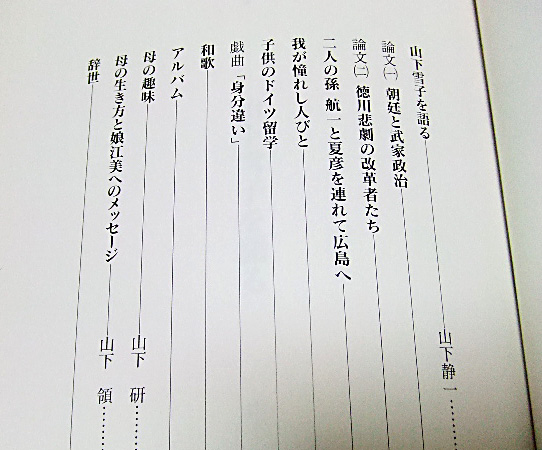 山下雪子を語る 山下静一
論文㈠ 朝廷と武家政治
論文㈡ 徳川悲劇の改革者たち
二人の孫 航一と夏彦を連れて広島へ
我が憧れし人びと
子供のドイツ留学
戯曲「身分違い」
和歌
アルバム
母の趣味 山下 研
母の生き方と娘江美へのメッセージ 山下 領
辞世